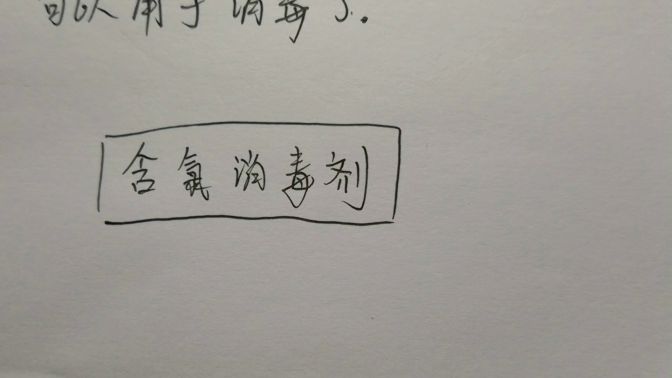 可以用于消毒了.
含氯消毒剂